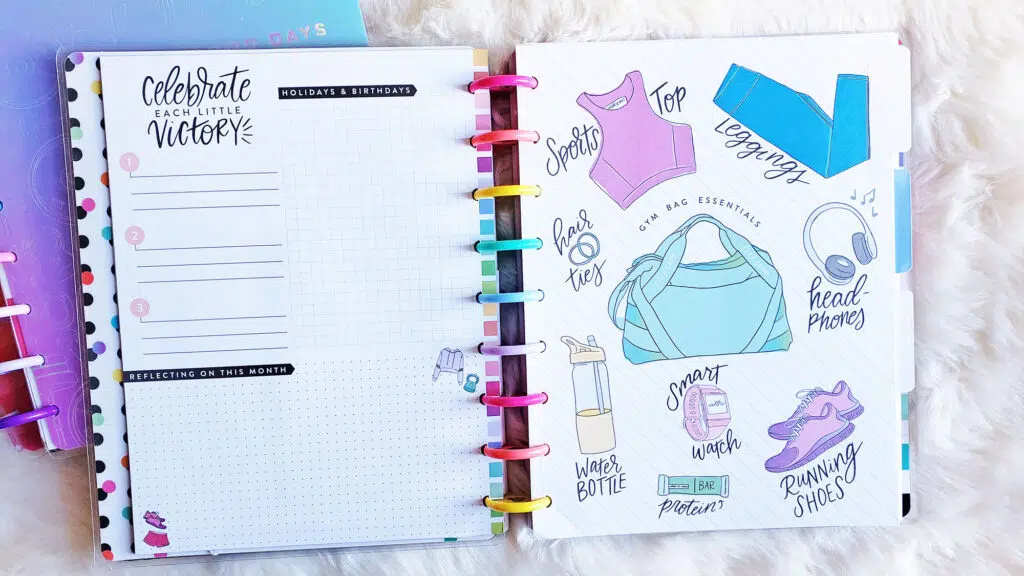 DAYS
Celebrate
EACH LITTLE
VICTORY
HOLIDAYS & BIRTHDAYS
1
2
3
REFLECTING ON THIS MONTH
Sports
Top
Leggings
GYM BAG ESSENTIALS
hair
ties
head-
phones
Water
BOTTLE
Smart
watch
BAR
Proteins
RUNNING
SHOES